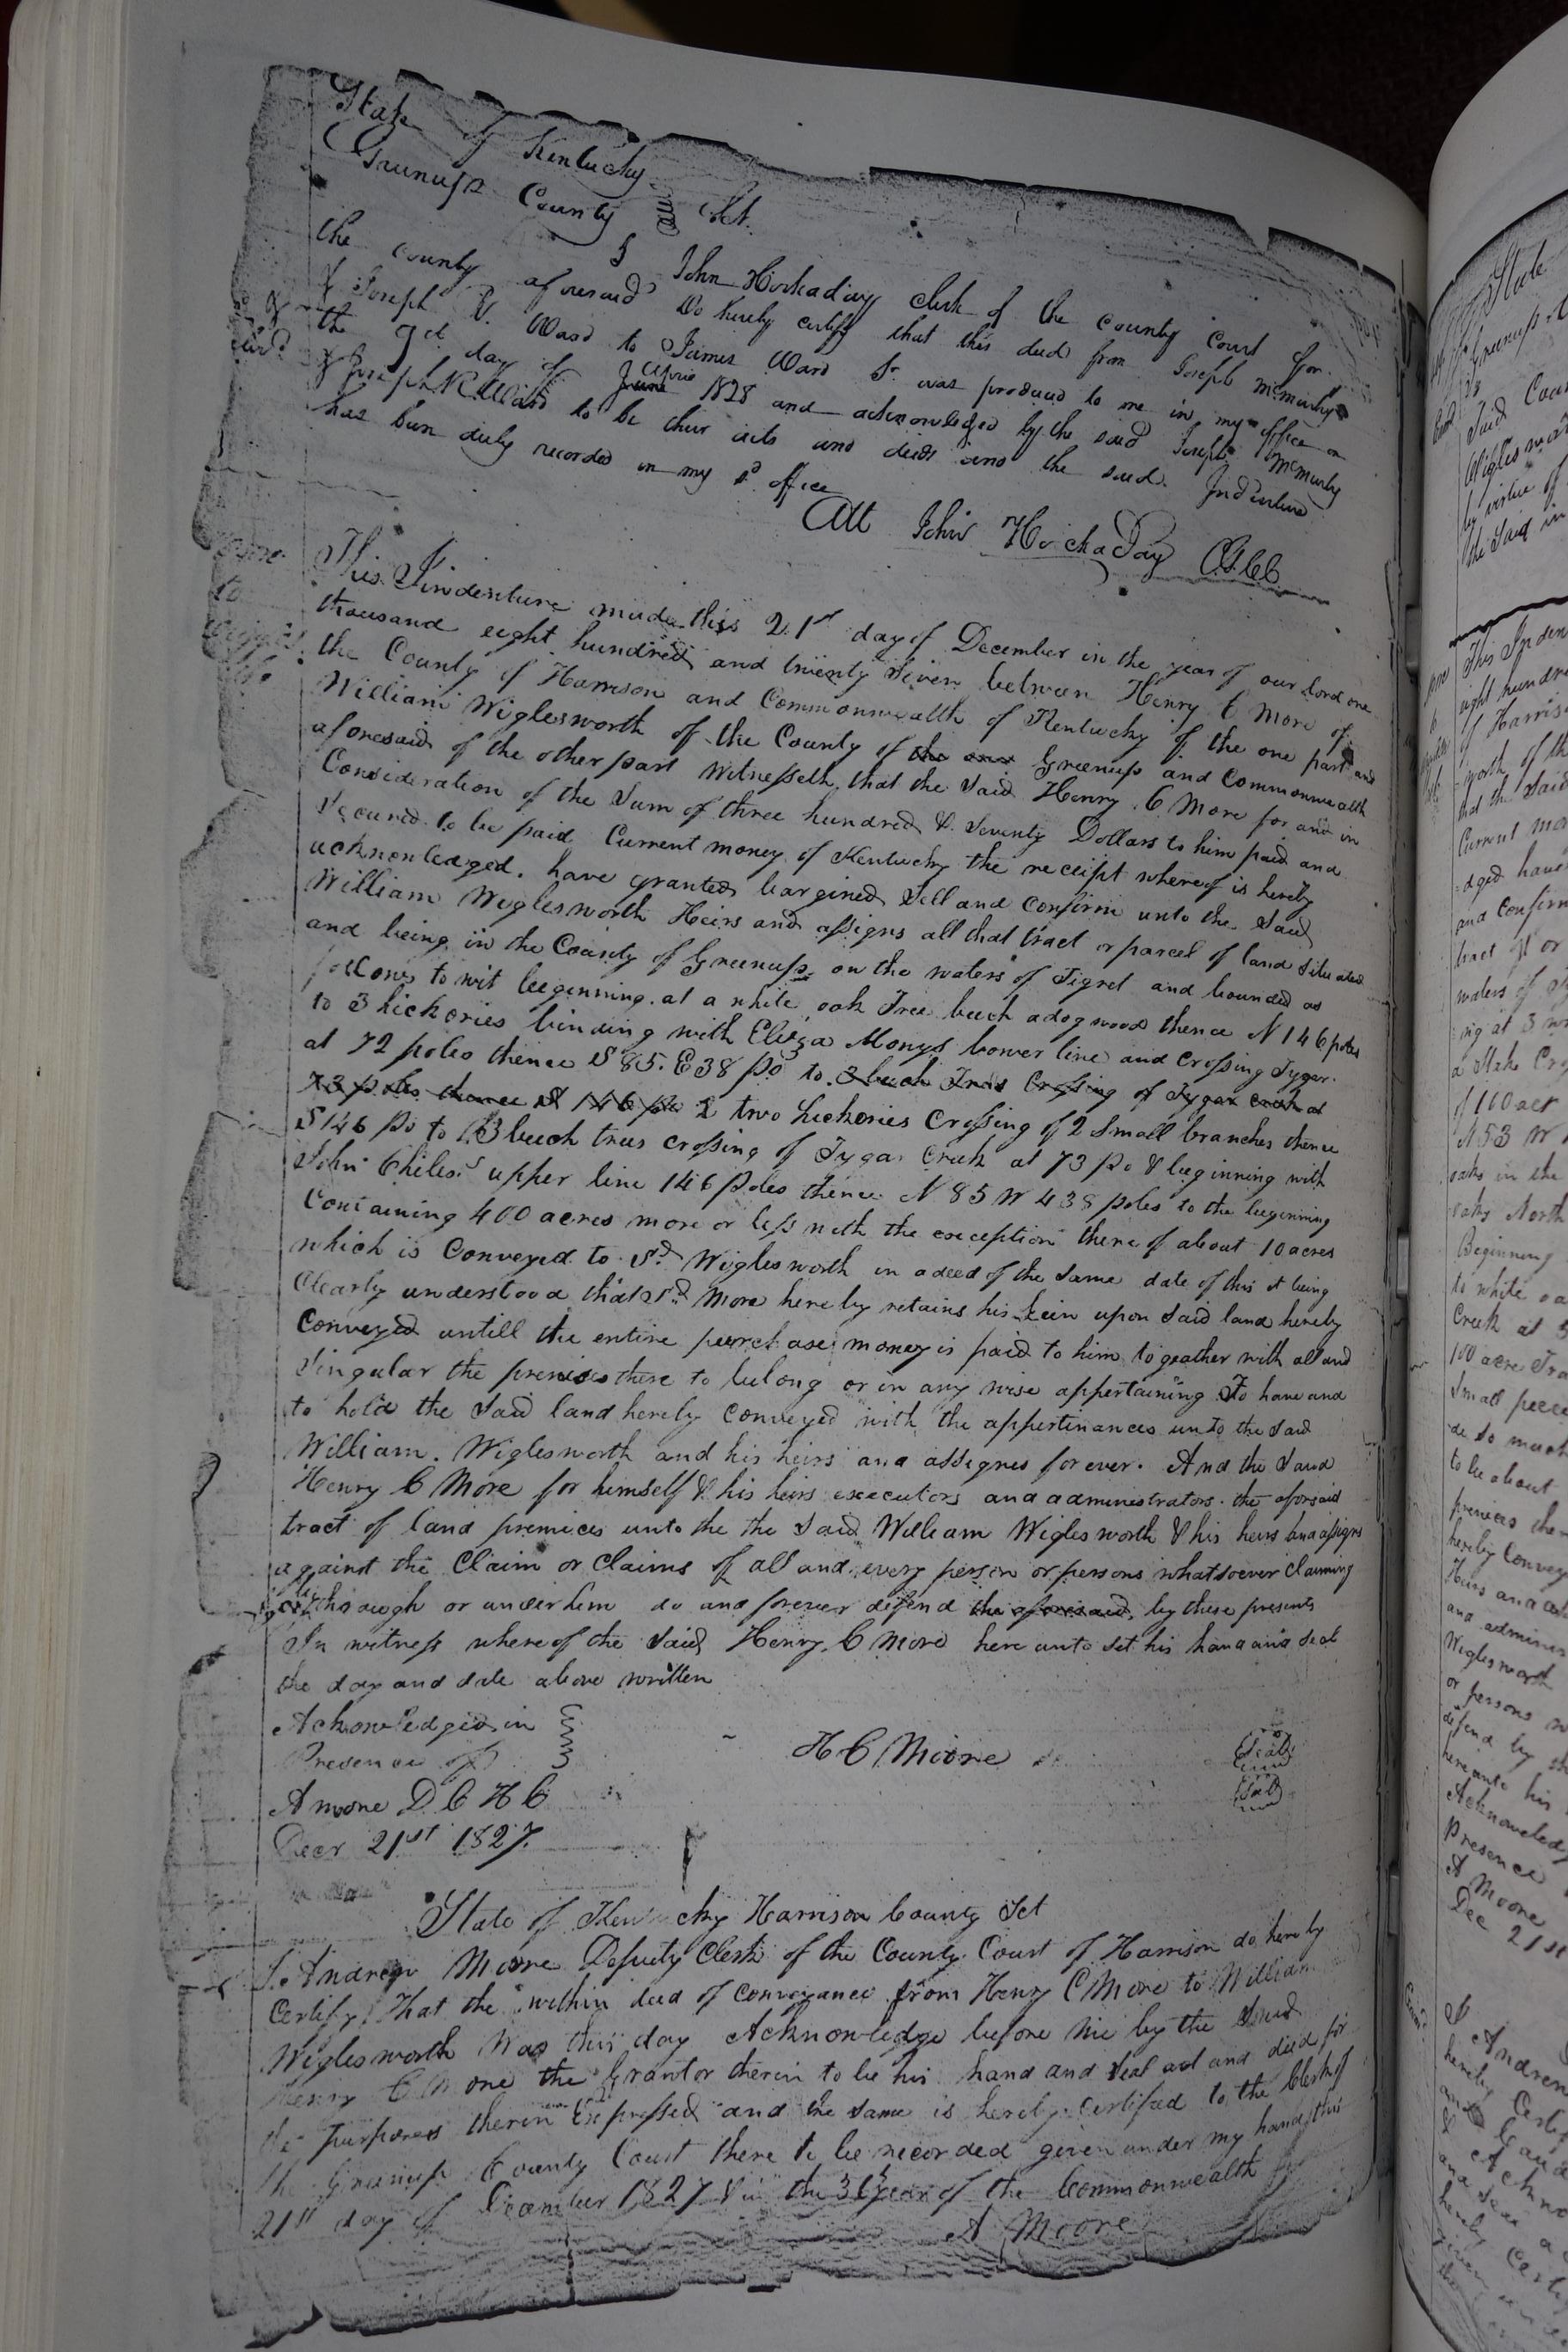 State of Kentucky
Greenup County Sct.
I John Hockaday clerk of the county court for
the county aforesaid do hereby certify that this deed from Joseph McMurtry
& Joseph R. Ward to James Ward Sr. was produced to me in my office on
the day of June April 1828 and acknowledged by the said Joseph McMurtry
& Joseph R Ward to be their acts and deeds and the said Indenture
has been duly recorded in my sd office
Att John Hockaday
to
This Indenture made this 21st day of December in the year of our Lord one
thousand eight hundred and twenty seven between Henry C More of
the County of Harrison and Commonwealth of Kentucky of the one part and
William Wiglesworth of the County of the one Greenup and Commonwealth
aforesaid of the other part Witnesseth, that the Said Henry C More for and in
Consideration of the Sum of three hundred & Seventy Dollars to him paid and
Secured to be paid Current money of Kentucky the receipt whereof is hereby
acknowledged, have granted bargined Sell and confirm unto the Said
William Wiglesworth Heirs and assigns all that tract or parcel of land Situated
and being in the County of Greenup on the waters of Tigret and bounded as
follows to wit beeginning at a white oak Tree beech a dogwood thence N 146 poles
to 3 hickories binding with Eliza Monys lower line and crossing Tygar
at 72 poles thence S 85. E 38 po to 3 beech Trees Crossing of Tygar creek at
73 poles thence S 146 po 2 two hickories Crossing of 2 Small branches thence
S 146 po to 3 beech trees crossing of Tygar Creek at 73 po & beginning with
John Chiles's upper line 146 Poles thence N 85 W 438 poles to the beeginning
Containing 400 acres more or less with the exception there of about 10 acres
which is Conveyed to Sd Wiglesworth in a deed of the Same date of this it being
Clearly understood that Sd More hereby retains his lein upon Said land hereby
Conveyed untill the entire purchase money is paid to him togeather with all and
Singular the premises there to belong or in any wise appertaining To have and
to hold the Said land hereby conveyed with the appertinances unto the Said
William Wiglesworth and his heirs and assignes forever. And the Said
Henry C More for himself & his heirs executors and administrators the aforsaid
tract of land premices unto the the Said William Wiglesworth & his heirs and assigns
against the Claim or Claims of all and every person or persons whatsoever Claiming
by through or under him do and forever defend the aforesaid, by these presents
In witness where of the Said Henry C More here unto set his hand and seal
the day and date above written
Acknowledged in
Presence of
H C Moore Seal
A moore D C H C Seal
Decr 21st 1827.
State of Kentucky Harrison County Sct
I. Andrew Moore Deputy Clerk of the County Court of Harrison do hereby
Certify That the within deed of conveyance from Henry C More to William
Wiglesworth Was this day Acknowledge before me by the Said
Henry C More the Grantor therein to be his hand and Seal act and deed for
the purposes therein Expressed and the same is hereby Certified to the Clerk of
the Greenup County Court there to be recorded given under my hand this
21st day of December 1827 & in the 36 year of the Commonwealth
A Moore
State
Greenup
Said Coun
Wigleswor
by virtue of
the Said in
This Inden
eight hundre
of Harris
worth of th
that the Said
Current mo
and confirm
tract of or
waters of
ing at 3
a Stake Cro
of 100 acr
N 53 W
oaks in the
oaks North
Beginning
to white oa
Creek at
100 acre Tra
Small peece
de so much
to be about
premices the
hereby Convey
Heirs and
and adminis
Wiglesworth
or persons
defend by th
hereunto his
Acknowledg
Presence
A Moore
Dec 21st
I Andrew
hereby Certif